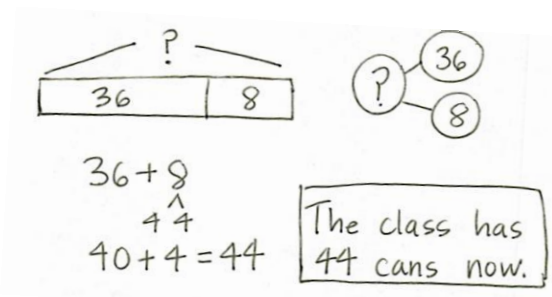 ?
36 8
? 36 8
36 + 8
4 4
40 + 4 = 44
The class has
44 cans now.